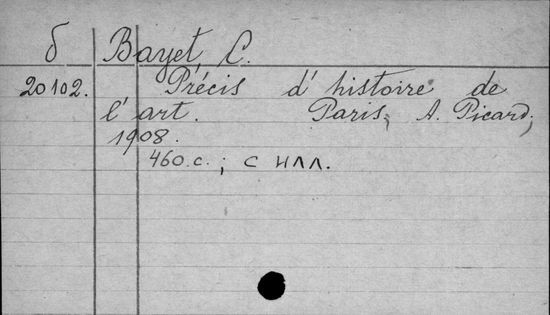 б Bayet, C.
20102. Précis d'histoire de
l'art. Paris, A. Picard,
1908.
460.с.; с илл.